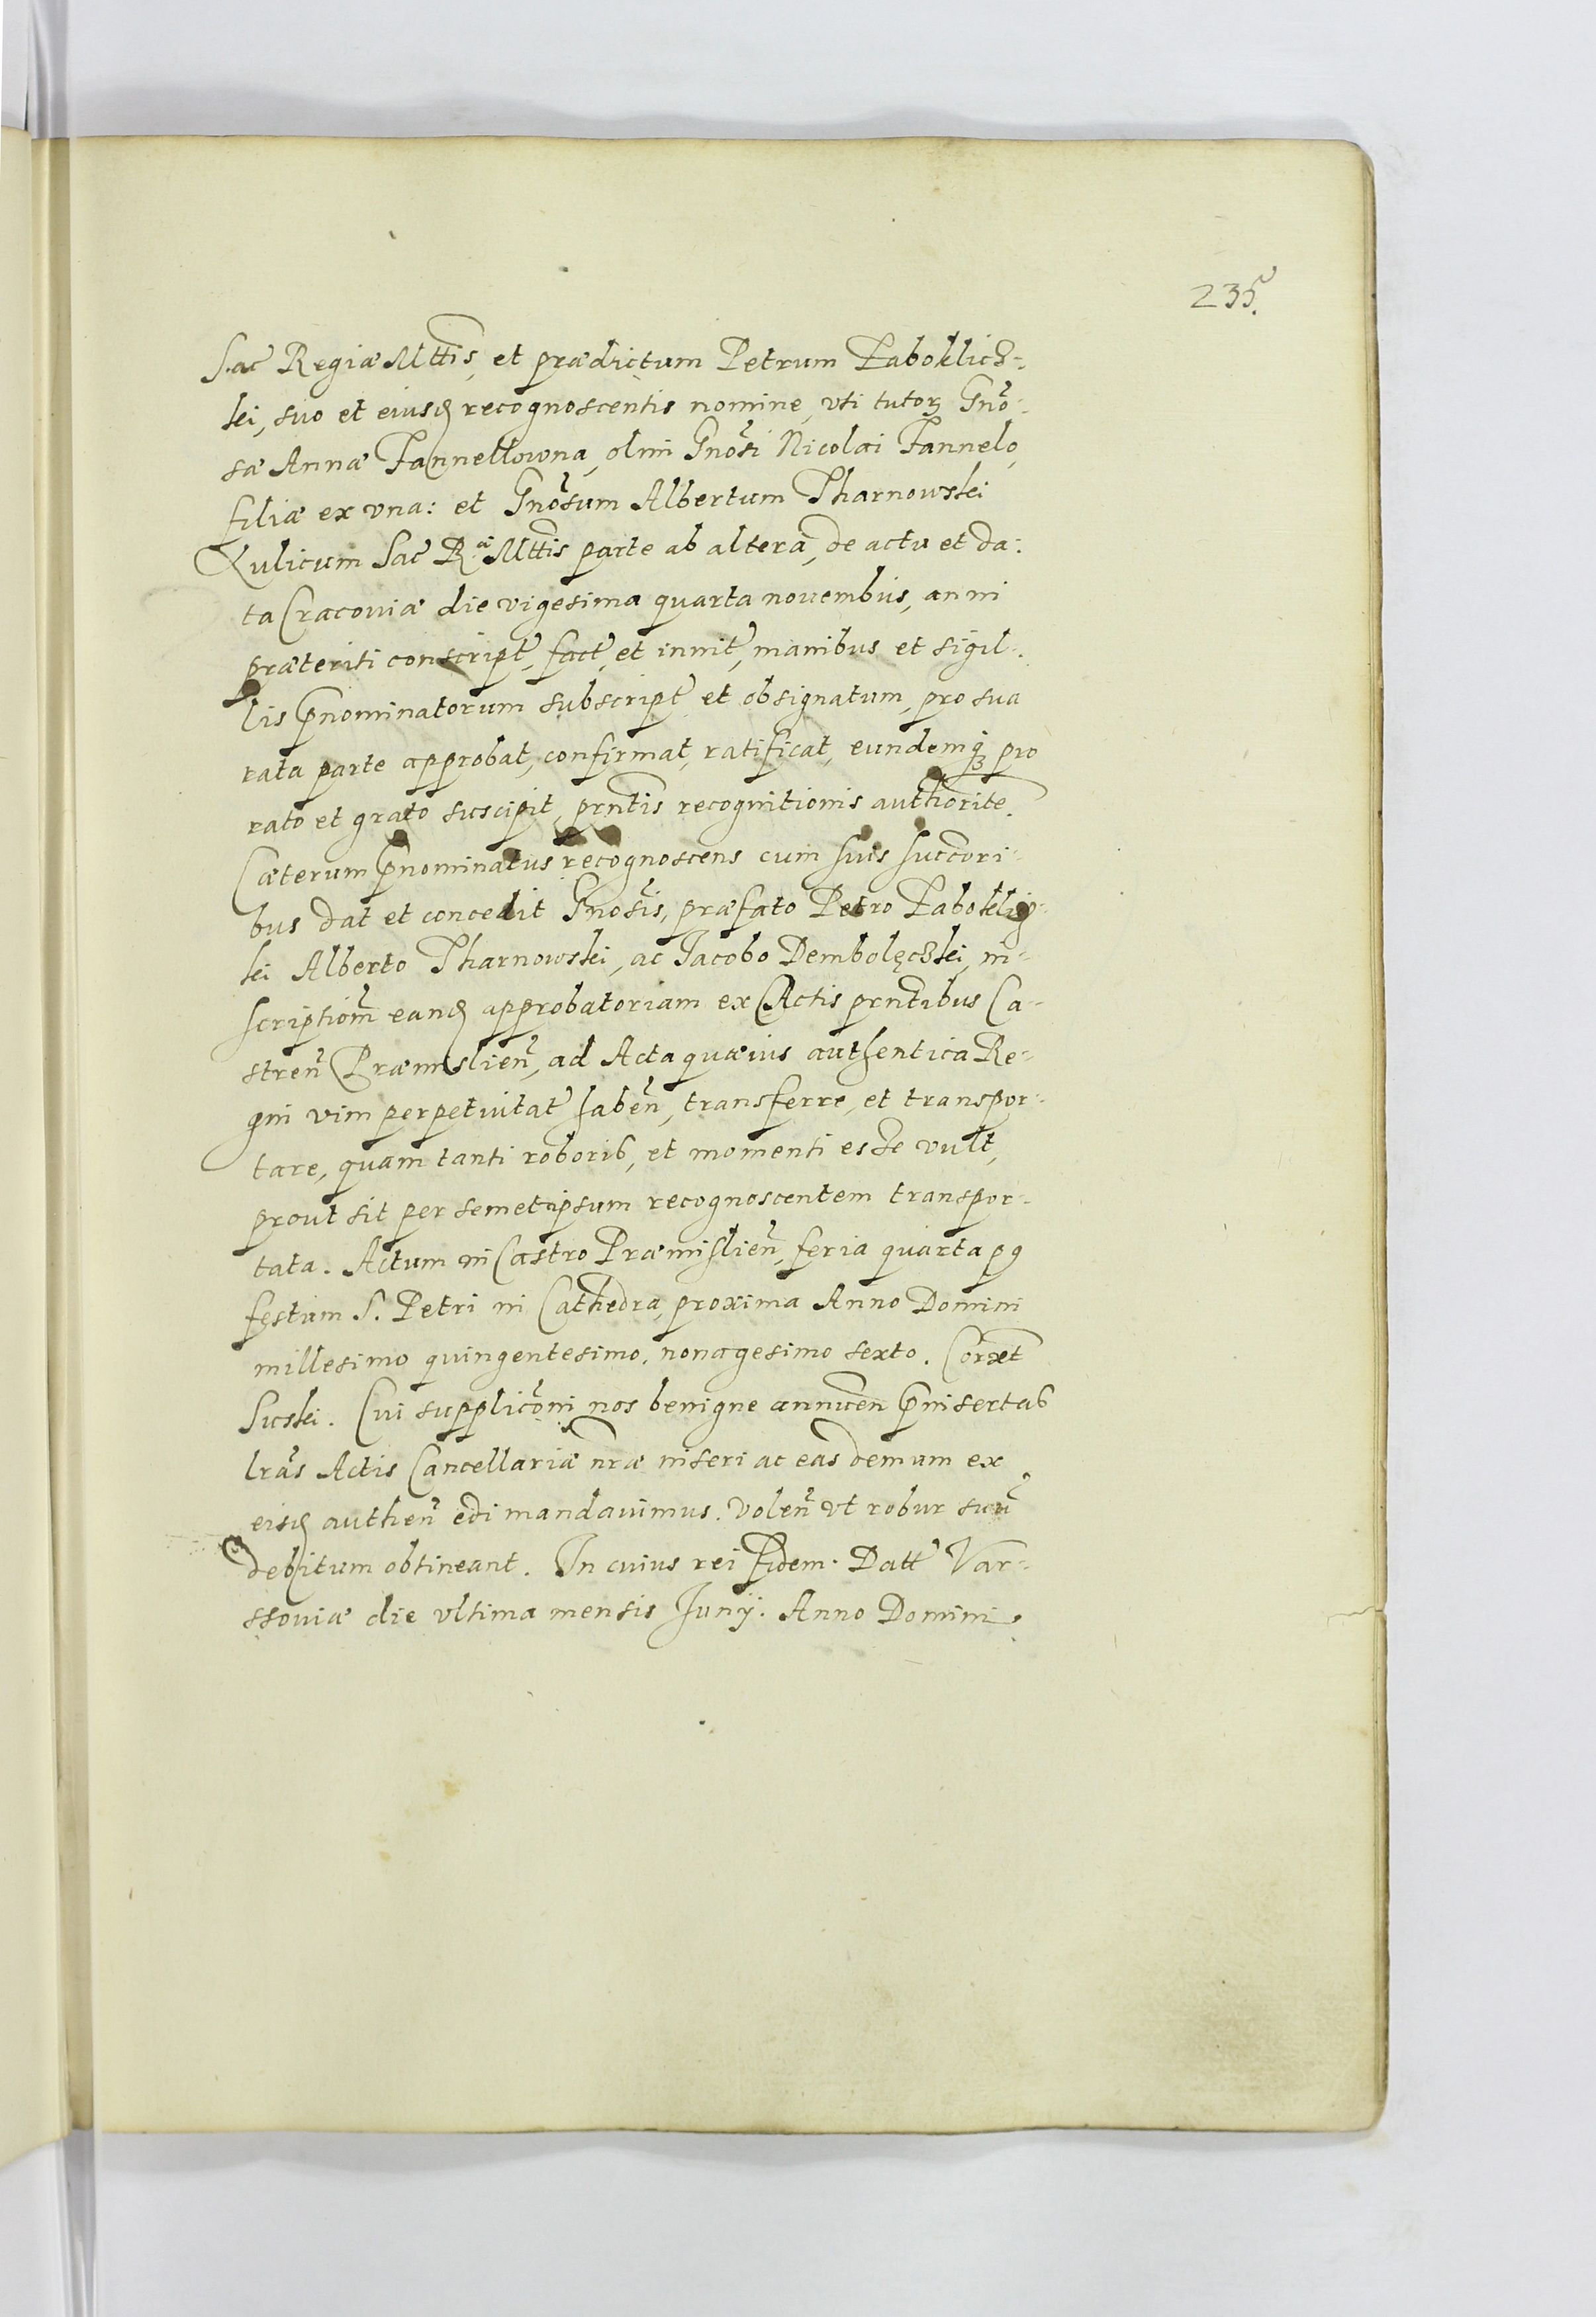 235.
Sac̃ Regiæ Mttis, et prædictum Petrum Paboklicz-
ski, suo et eiusd recognoscentis nomine, vti tutorꝫ Gño-
sæ Annæ Fannellowna, olim Gnosi Nicolai Fannelo,
filiæ ex vna: et Gnosum Albertum Tharnowski
Aulicum Sac̃ Rᵃ Mttis parte ab altera, de actu et da-
ta Cracouiæ die vigesima quarta nouembris, anni
præteriti conscript̃, fact̃, et innit̃, manibus et sigil-
lis p̃nominatorum subscript̃ et obsignatum, pro sua
rata parte approbat, confirmat, ratificat, eundemqꝫ pro
rato et grato suscipit, prñtis recognitionis authorite.
Cæterum p̃nominatus recognoscens cum suis succori-
bus dat et concedit Gnosis, præfato Petro Paboklicz-
ski Alberto Tharnowski, ac Jacobo Dembolęczki, in-
scriptiom̃ eand approbatoriam ex Actis prñtibus Ca-
streñ Præmislieñ, ad Acta quæuis authentica Re-
gni vim perpetuitat̃ habeñ, transferre, et transpor-
tare, quam tanti roboris, et momenti esse vult,
prout sit per semetipsum recognoscentem transpor-
tata. Actum in Castro Præmislieñ, feria quarta pꝯ
festum S. Petri in Cathedra, proxima Anno Domini
millesimo quingentesimo, nonagesimo sexto. Corrext̃
Suski. Cui supplicõni nos benigne annueñ p̃insertas
lrãs Actis Cancellariæ nr̃æ inseri ac eas demum ex
eisd autheñ edi mandauimus. Voleñ vt robur suũ
debitum obtineant. In cuius rei fidem. Datt̃ Var-
ssouiæ die vltima mensis Junij. Anno Domini.